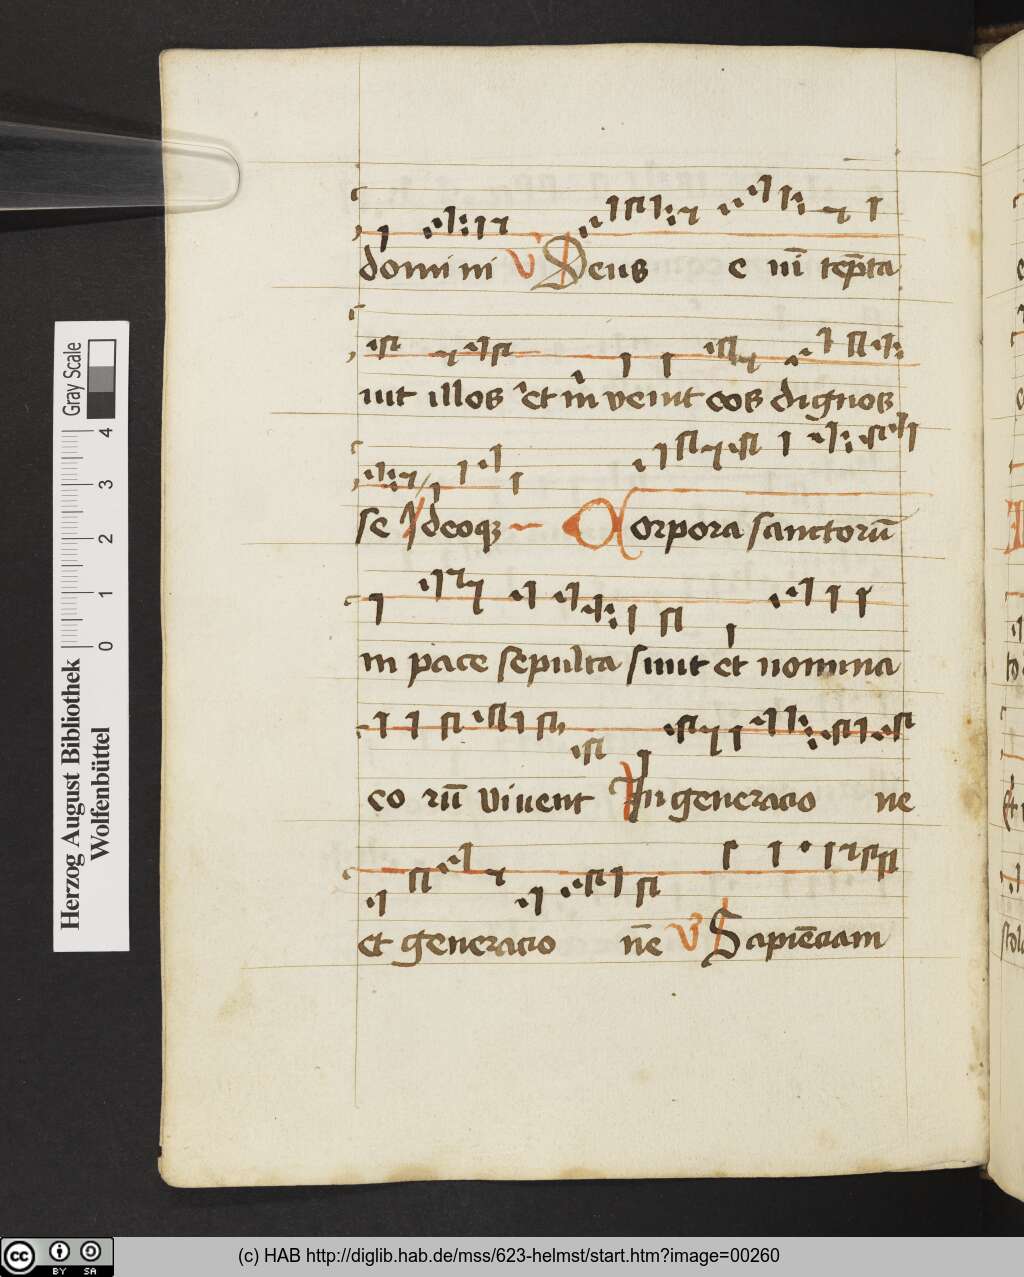 domini V Deus e nī tēpta
uit illos et invenit eos dignos
se Ideoqꝫ Corpora sanctorū
in pace sepulta sunt et nomina
eo rū vivent In generacio ne
et generacio nē V Sapiēciam
Gray Scale
4
3
2
1
0
Herzog August Bibliothek
Wolfenbüttel
cc BY SA
(c) HAB http://diglib.hab.de/mss/623-helmst/start.htm?image=00260